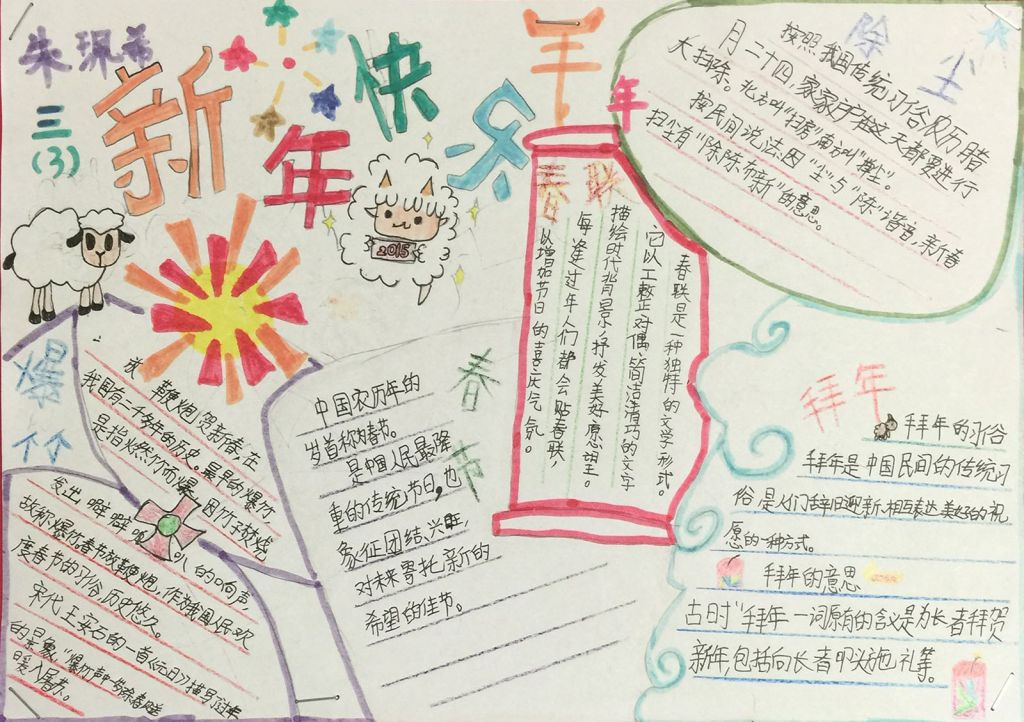 朱珮希
三(3)
新年快乐
羊年
2015
除尘
按照我国传统习俗农历腊
月二十四,家家户户在这天都要进行
大扫除。北方叫“扫房”南方叫“掸尘”。
按民间说法:因“尘”与“陈”谐音,新春
扫尘有“除陈布新”的意思。
春联
春联是一种独特的文学形式。
它以工整对偶、简洁清巧的文字
描绘时代背景,抒发美好愿望。
每逢过年人们都会贴春联,
以增加节日的喜庆气氛。
爆竹
放鞭炮贺新春,在
我国有二千多年的历史。最早的爆竹,
是指火然竹而爆,因竹子焚烧
发出噼噼啪叭的响声,
故称爆竹。春节放鞭炮,作为我国人民欢
度春节的习俗,历史悠久。
宋代王安石的一首《元日》描写了过年
的景象,“爆竹声中
暖入屠苏。
春节
中国农历年的
岁首称为春节。
是中国人民最隆
重的传统节日,也
象征团结、兴旺,
对未来寄托新的
希望的佳节。
拜年
拜年的习俗
拜年是中国民间的传统习
俗,是人们辞旧迎新、相互表达美好的祝
愿的一种方式。
拜年的意思
古时“拜年一词原有的含义是为长者拜贺
新年,包括向长者叩头施礼等。